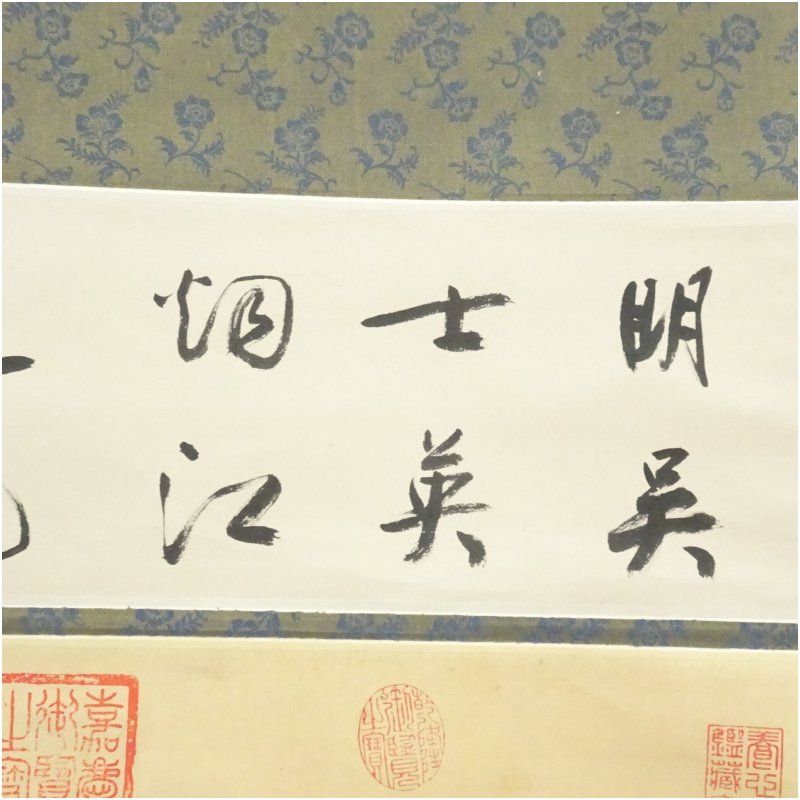 明吳
士英
烟江
養心
鑑藏
乾隆
御覽
之寶
嘉慶
御覽
之寶